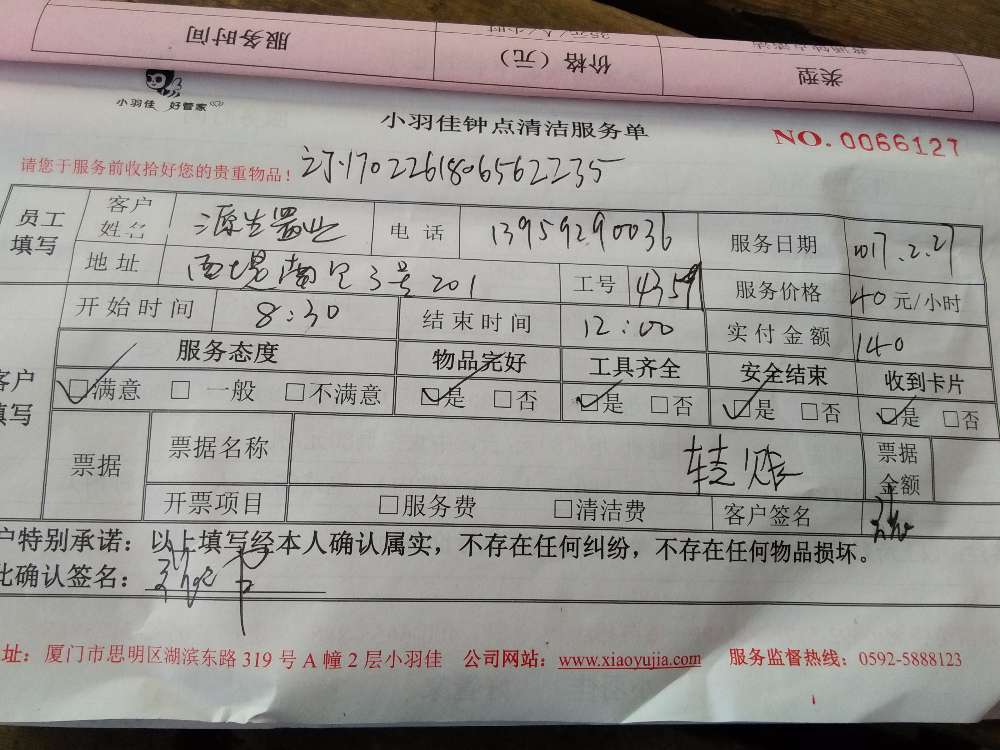 服务时间
价格（元）
类型
小羽佳 好管家
小羽佳钟点清洁服务单
NO. 0066127
请您于服务前收拾好您的贵重物品！
订1702261806562235
员工填写 客户姓名 源生置业 电话 13959290036 服务日期 2017.2.27
地址 西堤南里3号201 工号 4359 服务价格 40元/小时
开始时间 8:30 结束时间 12:00 实付金额 140
服务态度 物品完好 工具齐全 安全结束 收到卡片
客户填写 ☑满意 □一般 □不满意 ☑是 □否 ☑是 □否 ☑是 □否 ☑是 □否
票据 票据名称 转账 票据金额
开票项目 □服务费 □清洁费 客户签名
户特别承诺：以上填写经本人确认属实，不存在任何纠纷，不存在任何物品损坏。
此确认签名：
址：厦门市思明区湖滨东路319号A幢2层小羽佳 公司网站：www.xiaoyujia.com 服务监督热线：0592-5888123